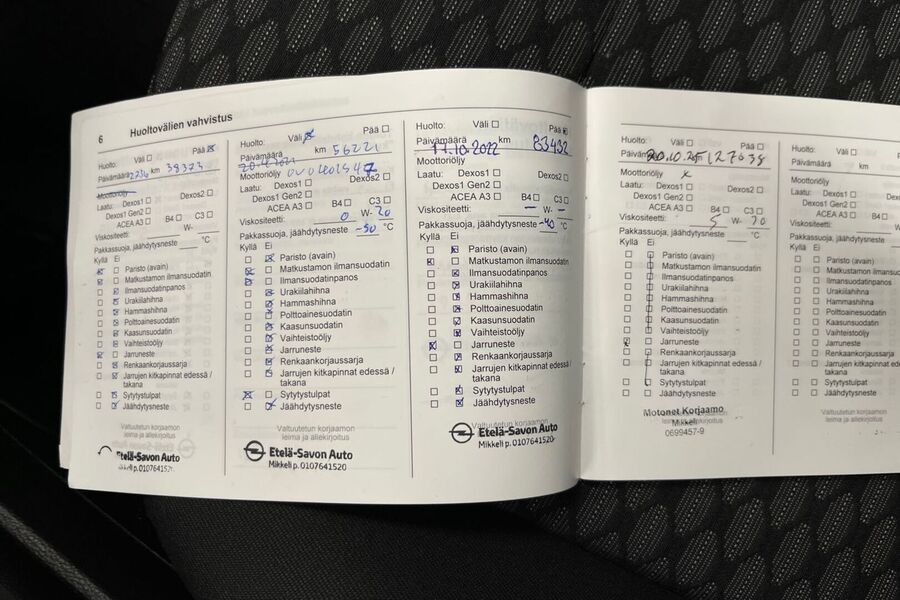 6 Huoltovälien vahvistus
Huolto: Väli Pää
Päivämäärä km 38373
Moottoriöljy
Laatu: Dexos1 Dexos2
Dexos1 Gen2
ACEA A3 B4 C3
Viskositeetti: W-
Pakkassuoja, jäähdytysneste °C
Kyllä Ei
Paristo (avain)
Matkustamon ilmansuodatin
Ilmansuodatinpanos
Urakiilahihna
Hammashihna
Polttoainesuodatin
Kaasunsuodatin
Vaihteistoöljy
Jarruneste
Renkaankorjaussarja
Jarrujen kitkapinnat edessä /
takana
Sytytystulpat
Jäähdytysneste
Valtuutetun korjaamon
leima ja allekirjoitus
Etelä-Savon Auto
p. 0107641520
Huolto: Väli Pää
Päivämäärä km 56221
Moottoriöljy
Laatu: Dexos1 Dexos2
Dexos1 Gen2
ACEA A3 B4 C3
Viskositeetti: 0 W- 20
Pakkassuoja, jäähdytysneste -30 °C
Kyllä Ei
Paristo (avain)
Matkustamon ilmansuodatin
Ilmansuodatinpanos
Urakiilahihna
Hammashihna
Polttoainesuodatin
Kaasunsuodatin
Vaihteistoöljy
Jarruneste
Renkaankorjaussarja
Jarrujen kitkapinnat edessä /
takana
Sytytystulpat
Jäähdytysneste
Valtuutetun korjaamon
leima ja allekirjoitus
Etelä-Savon Auto
Mikkeli p. 0107641520
Huolto: Väli Pää
Päivämäärä km
17.10.2022 83432
Moottoriöljy
Laatu: Dexos1 Dexos2
Dexos1 Gen2
ACEA A3 B4 C3
Viskositeetti: – W- –
Pakkassuoja, jäähdytysneste -40 °C
Kyllä Ei
Paristo (avain)
Matkustamon ilmansuodatin
Ilmansuodatinpanos
Urakiilahihna
Hammashihna
Polttoainesuodatin
Kaasunsuodatin
Vaihteistoöljy
Jarruneste
Renkaankorjaussarja
Jarrujen kitkapinnat edessä /
takana
Sytytystulpat
Jäähdytysneste
Valtuutetun korjaamon
leima ja allekirjoitus
Etelä-Savon Auto
Mikkeli p. 0107641520
Huolto: Väli Pää
Päivämäärä
Moottoriöljy x
Laatu: Dexos1 Dexos2
Dexos1 Gen2
ACEA A3 B4 C3
Viskositeetti: 5 W- 20
Pakkassuoja, jäähdytysneste °C
Kyllä Ei
Paristo (avain)
Matkustamon ilmansuodatin
Ilmansuodatinpanos
Urakiilahihna
Hammashihna
Polttoainesuodatin
Kaasunsuodatin
Vaihteistoöljy
Jarruneste
Renkaankorjaussarja
Jarrujen kitkapinnat edessä /
takana
Sytytystulpat
Jäähdytysneste
Motonet Korjaamo
Mikkeli
0699457-9
Huolto: Väli Pää
Päivämäärä km
Moottoriöljy
Laatu: Dexos1
Dexos1 Gen2
ACEA A3 B4
Viskositeetti:
Pakkassuoja, jäähdytysneste
Kyllä Ei
Paristo (avain)
Matkustamon ilmansuodatin
Ilmansuodatinpanos
Urakiilahihna
Hammashihna
Polttoainesuodatin
Kaasunsuodatin
Vaihteistoöljy
Jarruneste
Renkaankorjaussarja
Jarrujen kitkapinnat edessä /
takana
Sytytystulpat
Jäähdytysneste
Valtuutetun korjaamon
leima ja allekirjoitus